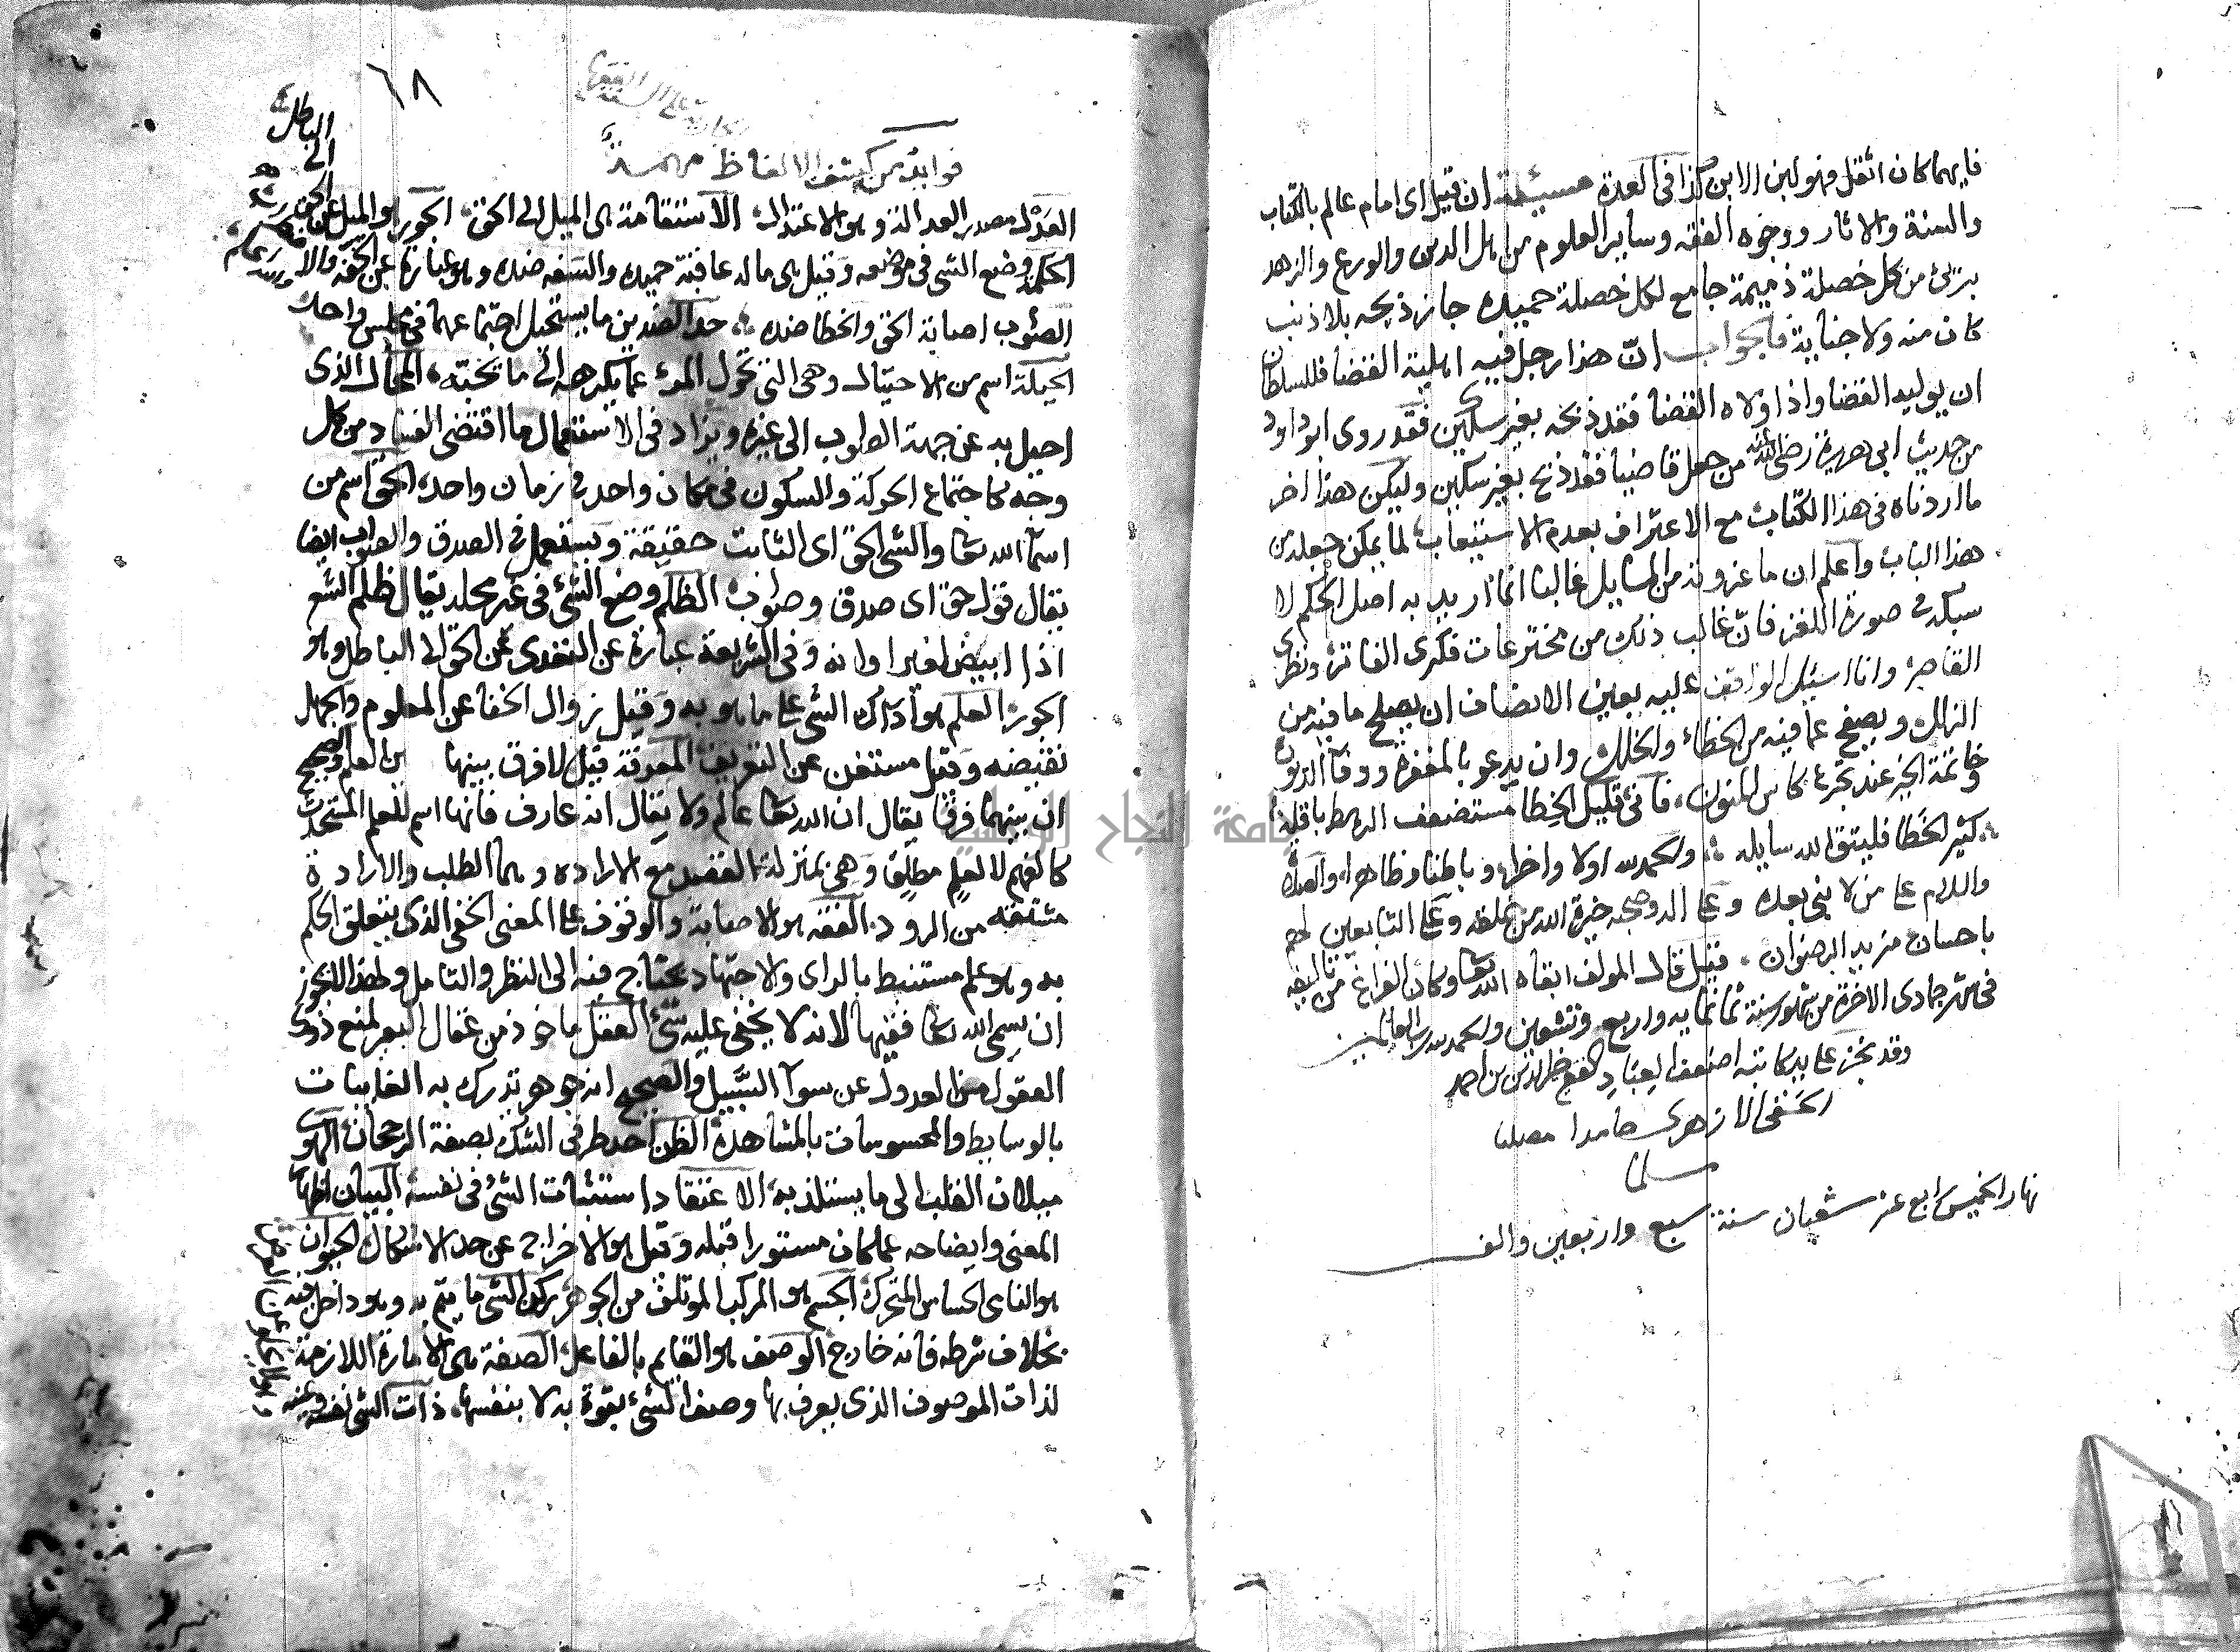 فايهما كان اثقل فهو لبن الابن كذا في العدة مسئلة ان قيل اى امام عالم بالكتاب
والسنة والاثار ووجوه الفقه وساير العلوم من اهل الدين والورع والزهد
برئ من كل خصلة ذميمة جامع لكل خصلة حميدة جاز ذبحه بلا ذنب
كان منه ولا جناية فالجواب ان هذا رجل فيه اهلية القضا فللسلطان
ان يوليه القضا واذا ولاه القضا فقد ذبحه بغير سكين فقد روى ابو داود
من حديث ابى هريرة رضى الله عنه من جعل قاضيا فقد ذبح بغير سكين وليكن هذا اخر
ما اردناه في هذا الكتاب مع الاعتراف بعدم الاستيعاب لما يمكن جعله من
هذا الباب واعلم ان ما عزوته من المسايل غالبا انما اريد به اصل الحكم لا
سبكه في صورة اللغز فان غالب ذلك من مخترعات فكرى الفاتر ونظرى
القاصر وانا اسئل الواقف عليه بعين الانصاف ان يصلح ما فيه من
الزلل ويصفح عما فيه من الخطاء والخلل وان يدعو بالمغفرة ووفا الديون
وخاتمة الخير عند تجرع كاس المنون فانى قليل الخطا مستضعف الرهط باقلة
كثير الخطا فليتق الله سايله والحمد لله اولا واخرا وباطنا وظاهرا والصلاة
والسلام على من لا نبى بعده وعلى اله وصحبه خيرة الله من خلقه وعلى التابعين لهم
باحسان مزيد الرضوان قيل قال المولف ابقاه الله تعالى وكان الفراغ من تاليفه
في شهر جمادى الاخرة من شهور سنة ثمانمايه واربع وتسعين والحمد لله رب العالمين
وقد نجز على يد كاتبه اضعف العباد الفقير خير الدين بن احمد
الحنفى الازهرى حامدا مصليا
مسلما
نهار الخميس رابع عشر شعبان سنة سبع واربعين والف
٦٨
فوايد من كشف الالفاظ مهمة
العدل مصدر العدالة وهو الاعتدال الاستقامة هى الميل الى الحق الجور هو الميل عن الحق
الى
الباطل
الحكمة وضع الشى في موضعه وقيل هى ما له عاقبة حميده والسفه ضده وهو عبارة عن الخفة
الصوب اصابة الحق والخطا ضده حد الضدين ما يستحيل اجتماعهما في مجلس واحد
الحيلة اسم من الاحتيال وهى التى تحول المرء عما يكرهه الى ما يحبه المحال الذى
احيل به عن جهة الصواب الى غيره ويراد في الاستعمال ما اقتضى الفساد من كل
وجه كاجتماع الحركة والسكون في مكان واحد في زمان واحد الحق اسم من
اسما الله تعا والشى الحق اى الثابت حقيقة ويستعمل في الصدق والصواب ايضا
يقال قول حق اى صدق وصواب الظلم وضع الشئ في غير محله يقال ظلم الشعر
اذا ابيض لغير اوانه وفي الشريعة عبارة عن التعدى عن الحق الى الباطل وهو
الجور العلم هو ادراك الشى على ما هو به وقيل زوال الخفا عن المعلوم والجهل
نقيضه وقيل مستغن عن التعريف المعرفة قيل لا فرق بينها وبين العلم والصحيح
ان بينهما فرقا يقال ان الله تعا عالم ولا يقال انه عارف فانها اسم للعلم المستحدث
كالفهم لا لعلم مطلق وهى بمنزلة القصد مع الارادة وهما الطلب والارادة
مشتقة من الرود الفقه هو الاصابة والوقوف على المعنى الخفى الذى يتعلق الحكم
به وهو علم مستنبط بالراى والاجتهاد يحتاج فيه الى النظر والتامل ولهذا لا يجوز
ان يسمى الله تعا فقيها لانه لا يخفى عليه شئ العقل ماخوذ من عقال البعير لمنع ذوى
العقول من العدول عن سواء السبيل والصحيح انه جوهر تدرك به الغايبات
بالوسايط والمحسوسات بالمشاهدة الظن احد طرفى الشك بصفة الرجحان الهوى
ميلان القلب الى ما يستلذ به الاعتقاد استثبات الشئ في نفسه البيان اظهار
المعنى وايضاحه عما كان مستورا قبله وقيل هو الاخراج عن حد الاشكال الحيوان
هو النامى الحساس المتحرك الجسم هو المركب الموتلف من الجوهر ركن الشى ما يتم به وهو داخل فيه
بخلاف شرطه فانه خارج الوصف هو القايم بالفاعل الصفة هى الامارة اللازمة
لذات الموصوف الذى يعرف بها وصف الشئ بقوة به لا بنفسها ذات الشى نفسه وعينه
جامعة النجاح الوطنية